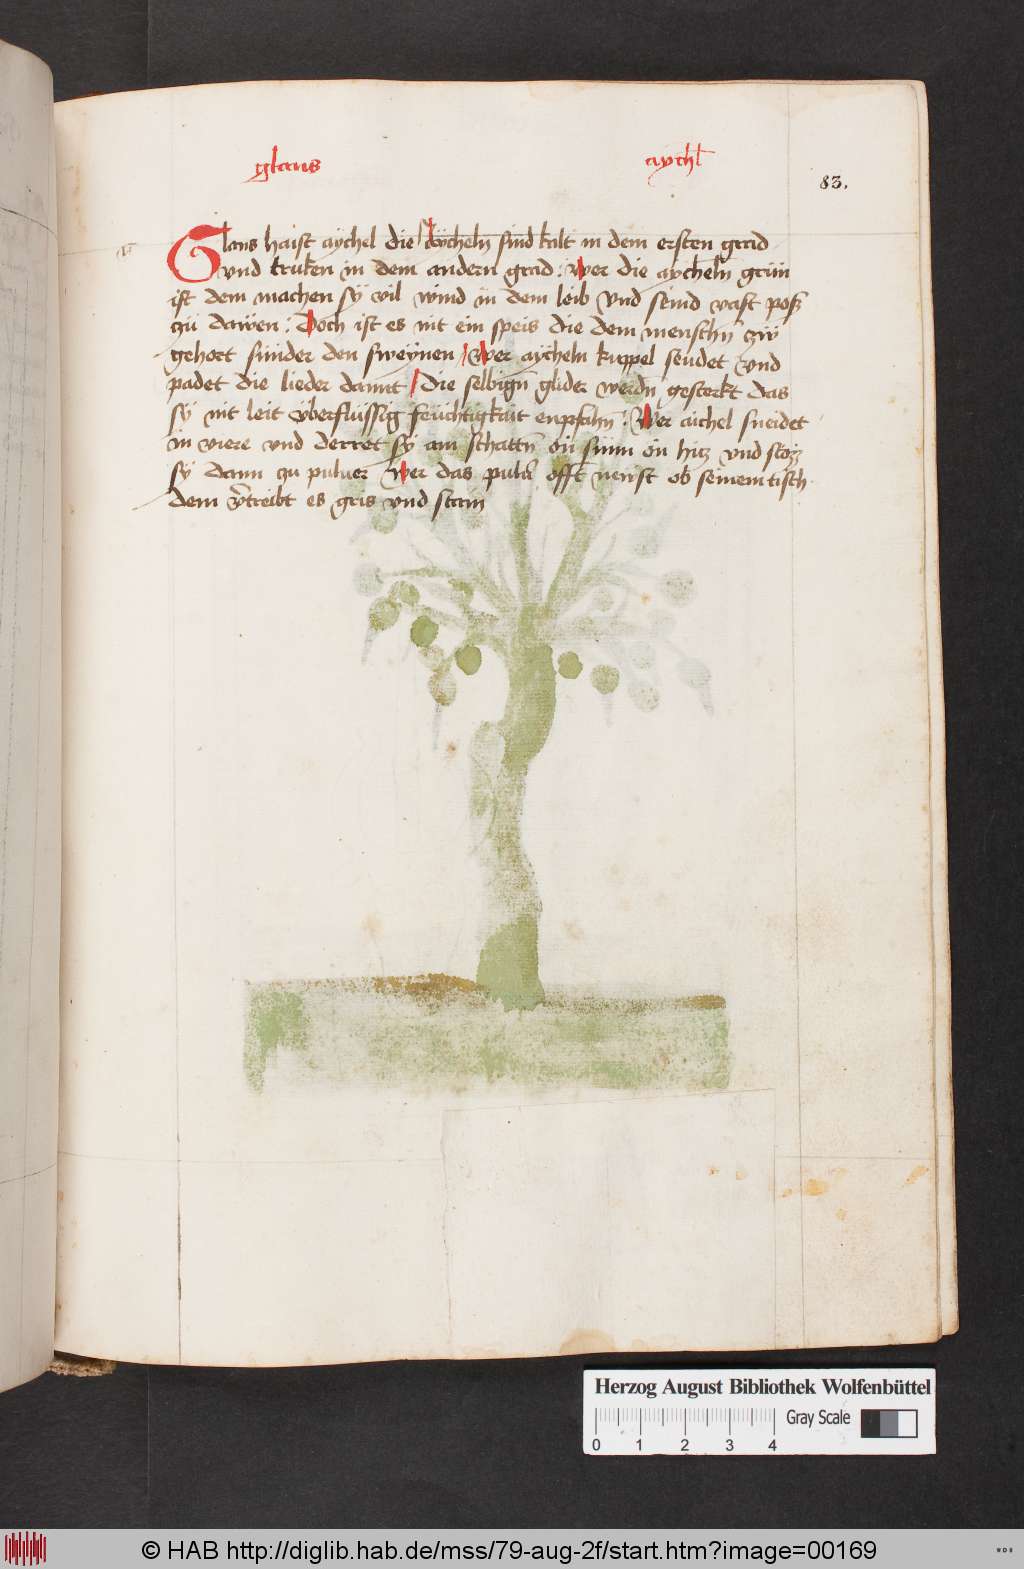 glans aychl
83.
Glans haist aychel die aycheln sind kalt in dem ersten grad
vnd truken in dem andern grad. wer die aycheln grün
ist dem machen sÿ vil wind in dem leib vnd seind vast poß
zü dawen. Doch ist es nit ein speis die dem menschn zw
gehort sunder den sweÿnen / Wer aycheln kuppel seudet vnd
padet die lieder damit / die selbign glider werdn gesterkt das
sÿ nit leit vberflüssig feüchtigkait enpfahn. Wer aichel sneidet
in viere vnd derret sÿ am schattn on sunn on hitz vnd stoz
sÿ dann zu puluer wer das pulu offt nenst ob seinem tisch
dem vtreibt es gris vnd stain
Herzog August Bibliothek Wolfenbüttel
Gray Scale
0 1 2 3 4
© HAB http://diglib.hab.de/mss/79-aug-2f/start.htm?image=00169